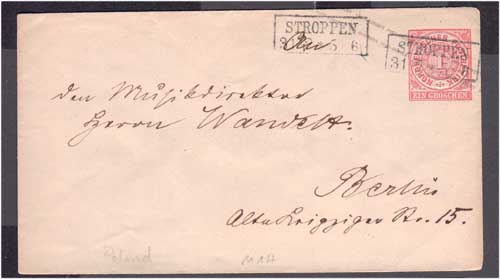 STROPPEN
An
6
STROPPEN
31 6
EIN GROSCHEN
den Musikdirektor
Herrn Wandelt.
Berlin
Alte Leipziger Str. 15.
Poland